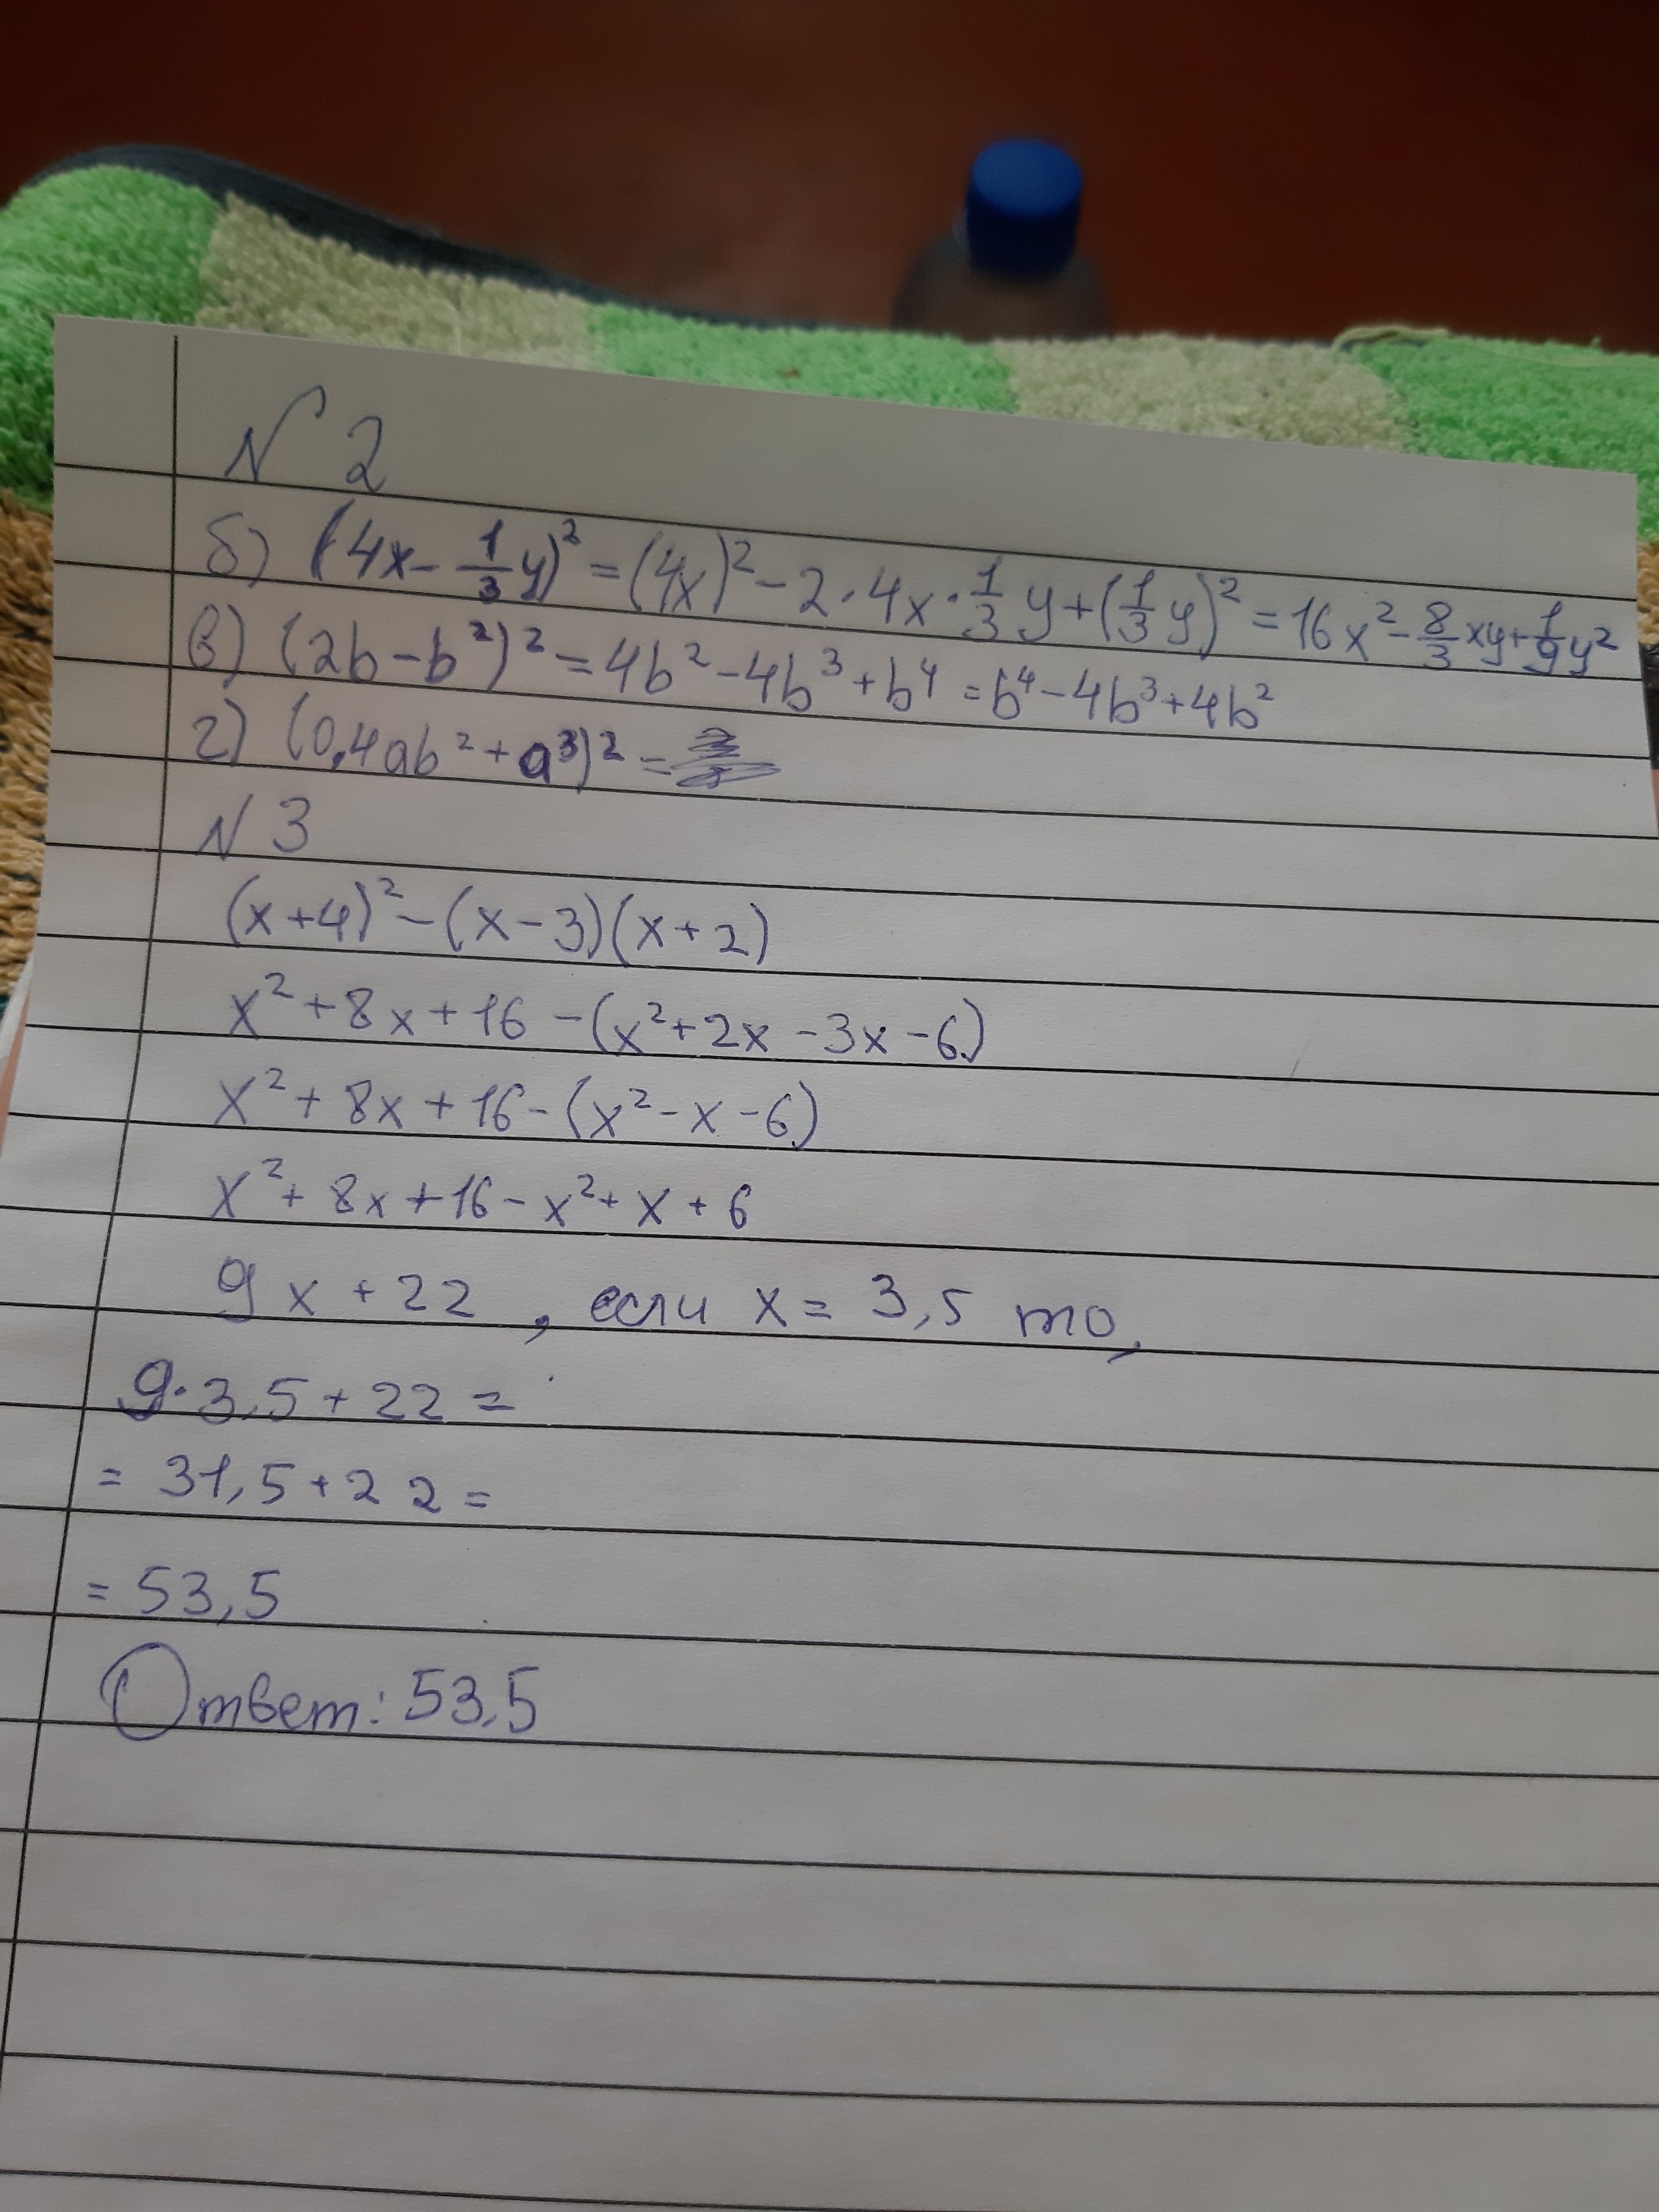 N 2
б) (4x - 1/3 y)² = (4x)² - 2 · 4x · 1/3 y + (1/3 y)² = 16x² - 8/3 xy + 1/9 y²
в) (2b - b²)² = 4b² - 4b³ + b⁴ = b⁴ - 4b³ + 4b²
г) (0,4ab² + a³)² =
N 3
(x + 4)² - (x - 3)(x + 2)
x² + 8x + 16 - (x² + 2x - 3x - 6)
x² + 8x + 16 - (x² - x - 6)
x² + 8x + 16 - x² + x + 6
9x + 22, если x = 3,5 то,
9 · 3,5 + 22 =
= 31,5 + 22 =
= 53,5
Ответ: 53,5